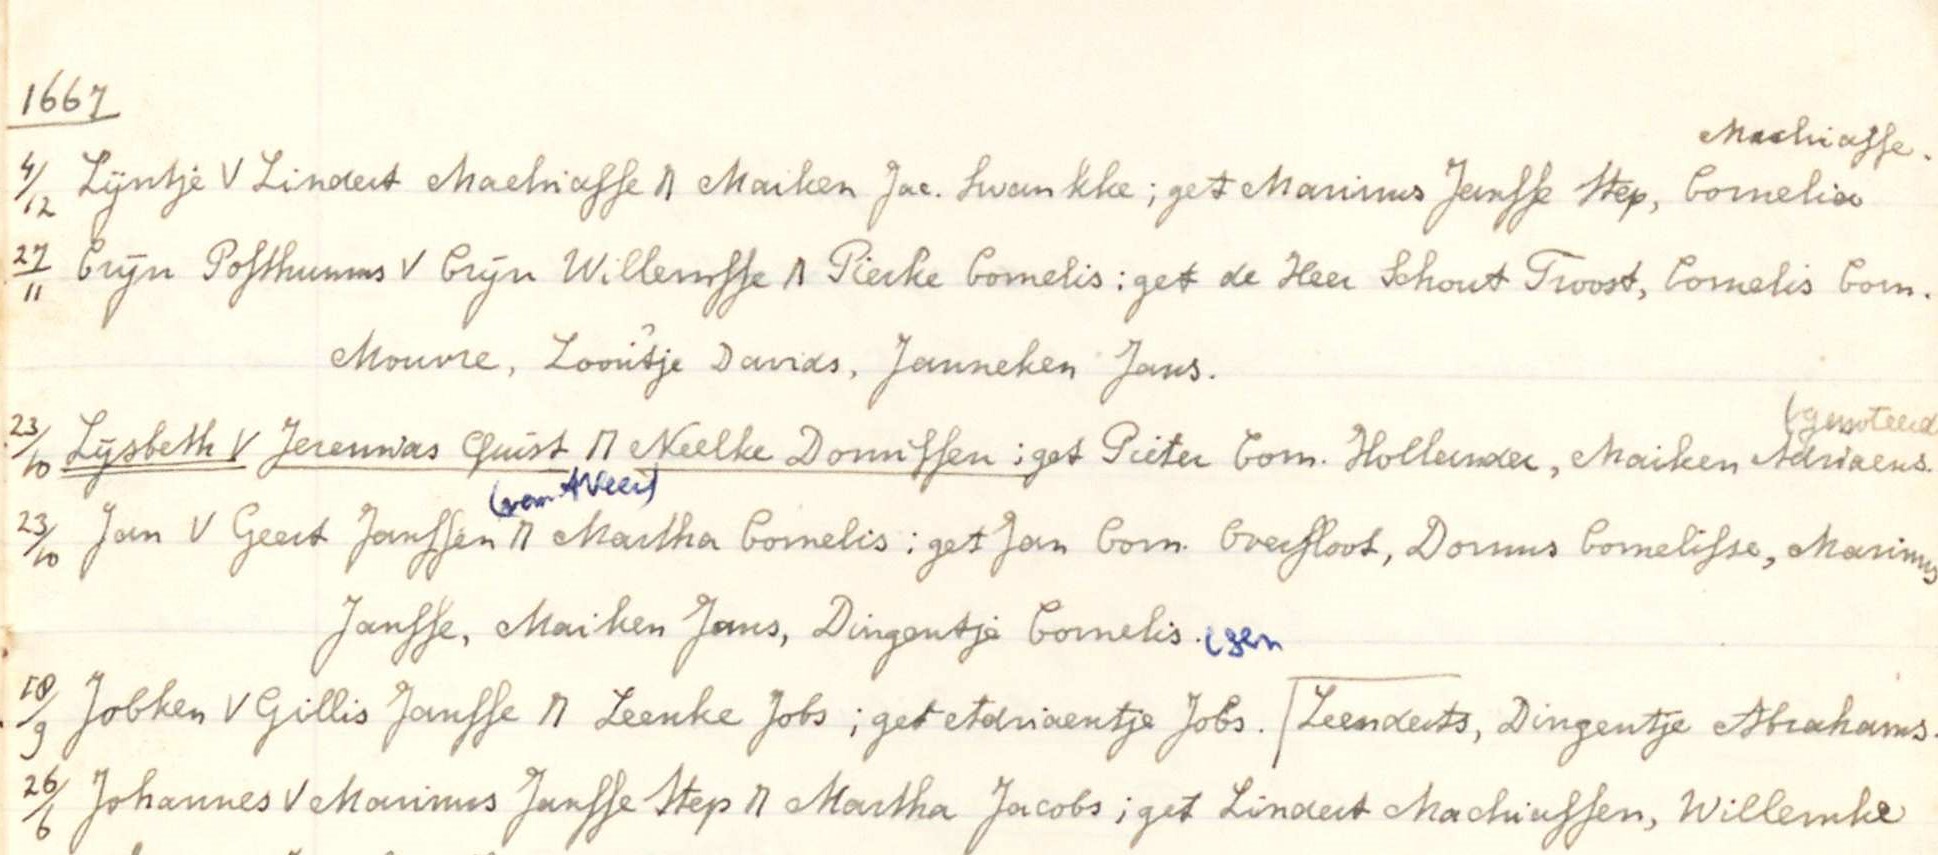 1667
Machiasse.
4/12 Lijntje V Lindert Machiasse M Maiken Jac. Swankke ; get Marinus Jansse Step, Cornelia
27/11 Crijn Posthumus V Crijn Willemsse M Pierke Cornelis ; get de Heer Schout Troost, Cornelis Corn.
Mouvre, Looutje Davids, Janneken Jans.
(gensteerd
23/10 Lijsbeth V Jeremias Quist M Neelke Donnissen ; get Pieter Corn. Hollander, Maiken Adriaens.
(van A Veer)
23/10 Jan V Geert Janssen M Martha Cornelis ; get Jan Corn. Overfloot, Dornus Cornelisse, Marinus
Jansse, Maiken Jans, Dingentje Cornelis. (gen
18/9 Jobken V Gillis Jansse M Leenke Jobs ; get Adriaentje Jobs. Leenderts, Dingentje Abrahams.
26/6 Johannes V Marinus Jansse Step M Martha Jacobs ; get Lindert Machiassen, Willemke